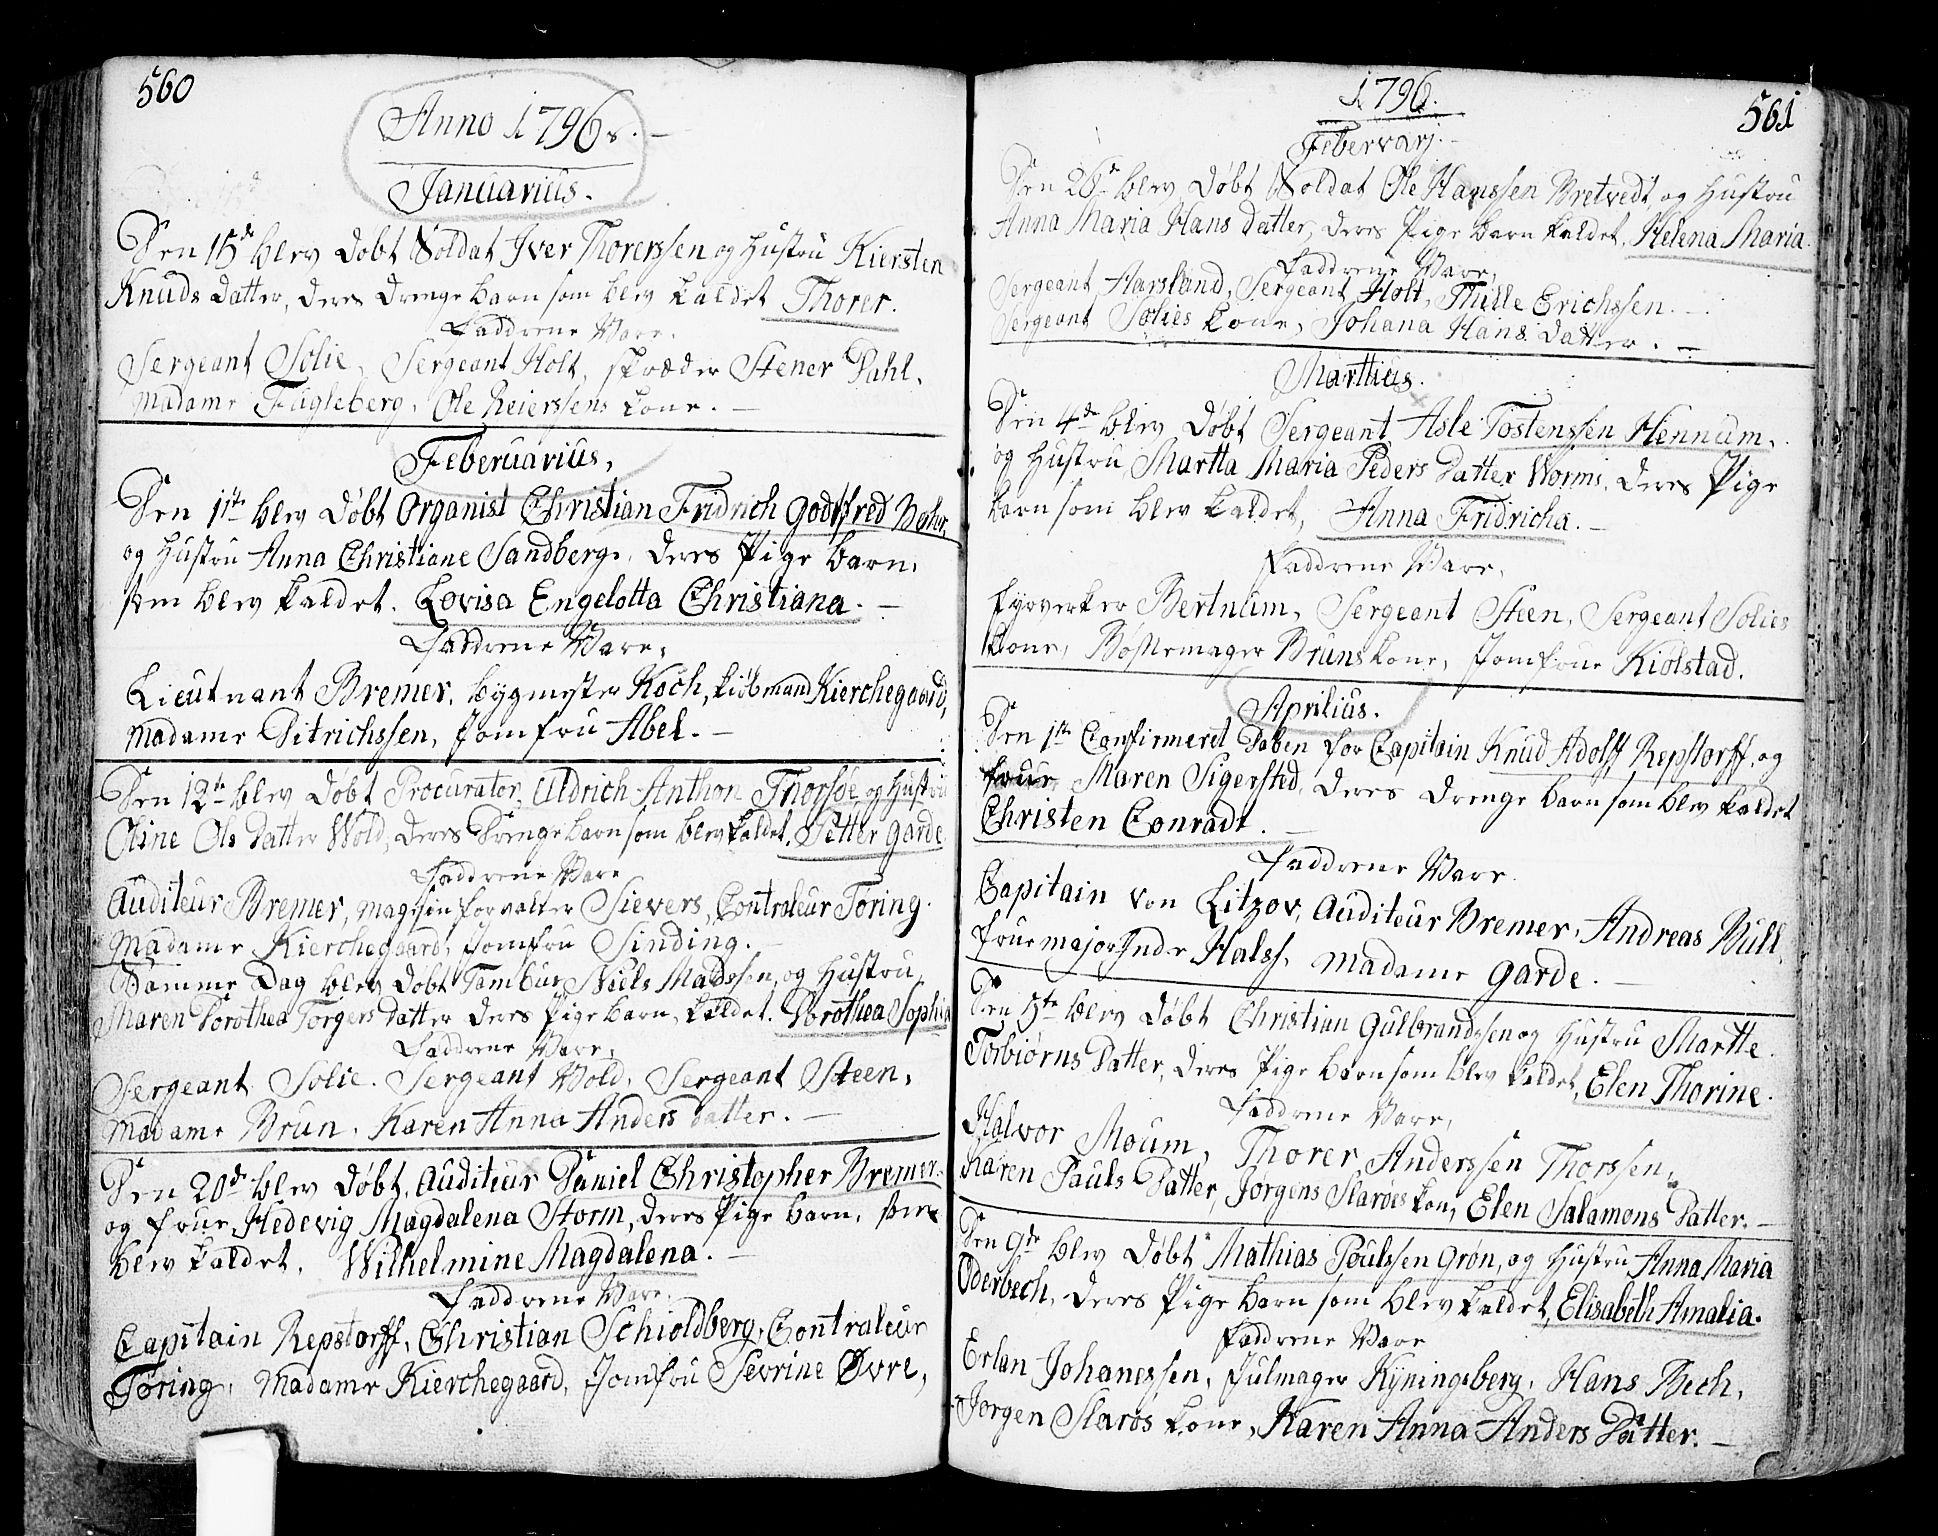 560
Anno 1796.
Januarius.
Den 15de blev Døbt Soldat Iver Thorerssen og Hustru Kiersten
Knuds Datter, deres Drenge barn som blev kaldet Thorer.
Faddrene Vare.
Sergeant Solie, Sergeant Holt, Skræder Stener Dahl,
Madame Fugleberg, Ole Reierssens kone.
Feberuarius,
Den 1ste blev Døbt Organist Christian Fridrich Godtfred Bohr,
og Hustru Anna Christiane Sandberg, deres Pige barn,
som blev kaldet. Lovisa Engelotta Christiana.
Faddrene Vare,
Lieutnant Bremer, bygmester Koch, kiøbmand Kierchegaard,
Madame Ditrichssen, Jomfru Abel.
Den 12te blev Døbt Procurator, Uldrich Anthon Thorsøe, og Hustru
Oline Ols Datter Wold, deres Drenge barn som blev kaldet, Petter Garde
Faddrene Vare
Auditeur Bremer, Magasin forvalter Sievers, Contraleur Tøring.
Madame Kierchegaard, Jomfru Sinding.
Samme Dag blev Døbt Tambur Niels Madssen, og Hustru,
Maren Dorothea Torgers Datter deres Pige barn, kaldet. Dorothea Sophia
Faddrene Vare,
Sergeant Solie. Sergeant Wold, Sergeant Steen,
Madame Brun, Karen Anna Anders Datter.
Den 20de blev Døbt, Auditeur Daniel Christopher Bremer.
og frue, Hedevig Magdalena Storm, deres Pige barn, som
blev kaldet, Wilhelmine Magdalena.
Faddrene Vare.
Capitain Repstorff, Christian Schioldberg, Contraleur
Tøring, Madame Kierchegaard, Jomfru Sevrine Øvre,
1796.
561
Febervarj.
Den 26de blev Døbt Soldat Ole Hanssen Bretvedt, og Hustru
Anna Maria Hans Datter, deres Pige barn kaldet, Helena Maria.
Faddrene Vare,
Sergeant Harsland, Sergeant Holt, Thille Erichssen.
Sergeant Solies kone, Johana Hans Datter.
Marttius.
Den 4de blev Døbt Sergeant Asle Tostenssen Hennum,
og Hustru, Martta Maria Peders Datter Worms, deres Pige
barn som blev kaldet, Anna Fridricha.
Faddrene Vare,
Fyrverker Bertnum, Sergeant Steen, Sergeant Solies
kone, Bøssemager Bruns kone, Jomfrue Kiølstad.
Aprilius.
Den 1ste Confirmeret Daben for Capitain Knud Adolff Repstorff, og
frue, Maren Sigersted, deres Drenge barn som blev kaldet
Christen Conradt.
Faddrene Vare.
Capitain von Litzov, Auditeur Bremer, Andreas Bull,
frue majorinde Halss, Madame Garde.
Den 5te blev Døbt Christian Gulbrandssen og Hustru Martte
Torbiørns Datter, deres Pige barn som blev kaldet, Elen Thorine.
Faddrene Vare,
Halvor Moum, Thorer Anderssen Thorssen,
Karen Pauls Datter, Jørgens Slarøes kone, Elen Salamons Datter.
Den 9de blev Døbt Mathias Poulssen Grøn, og Hustru Anna Maria
Oderbech, deres Pige barn som blev kaldet, Elisabeth Amalia.
Faddrene Vare
Erlan Johanessen, Hjulmager Kyningsberg, Hans Bech,
Jørgen Slarøs kone, Karen Anna Anders Datter.